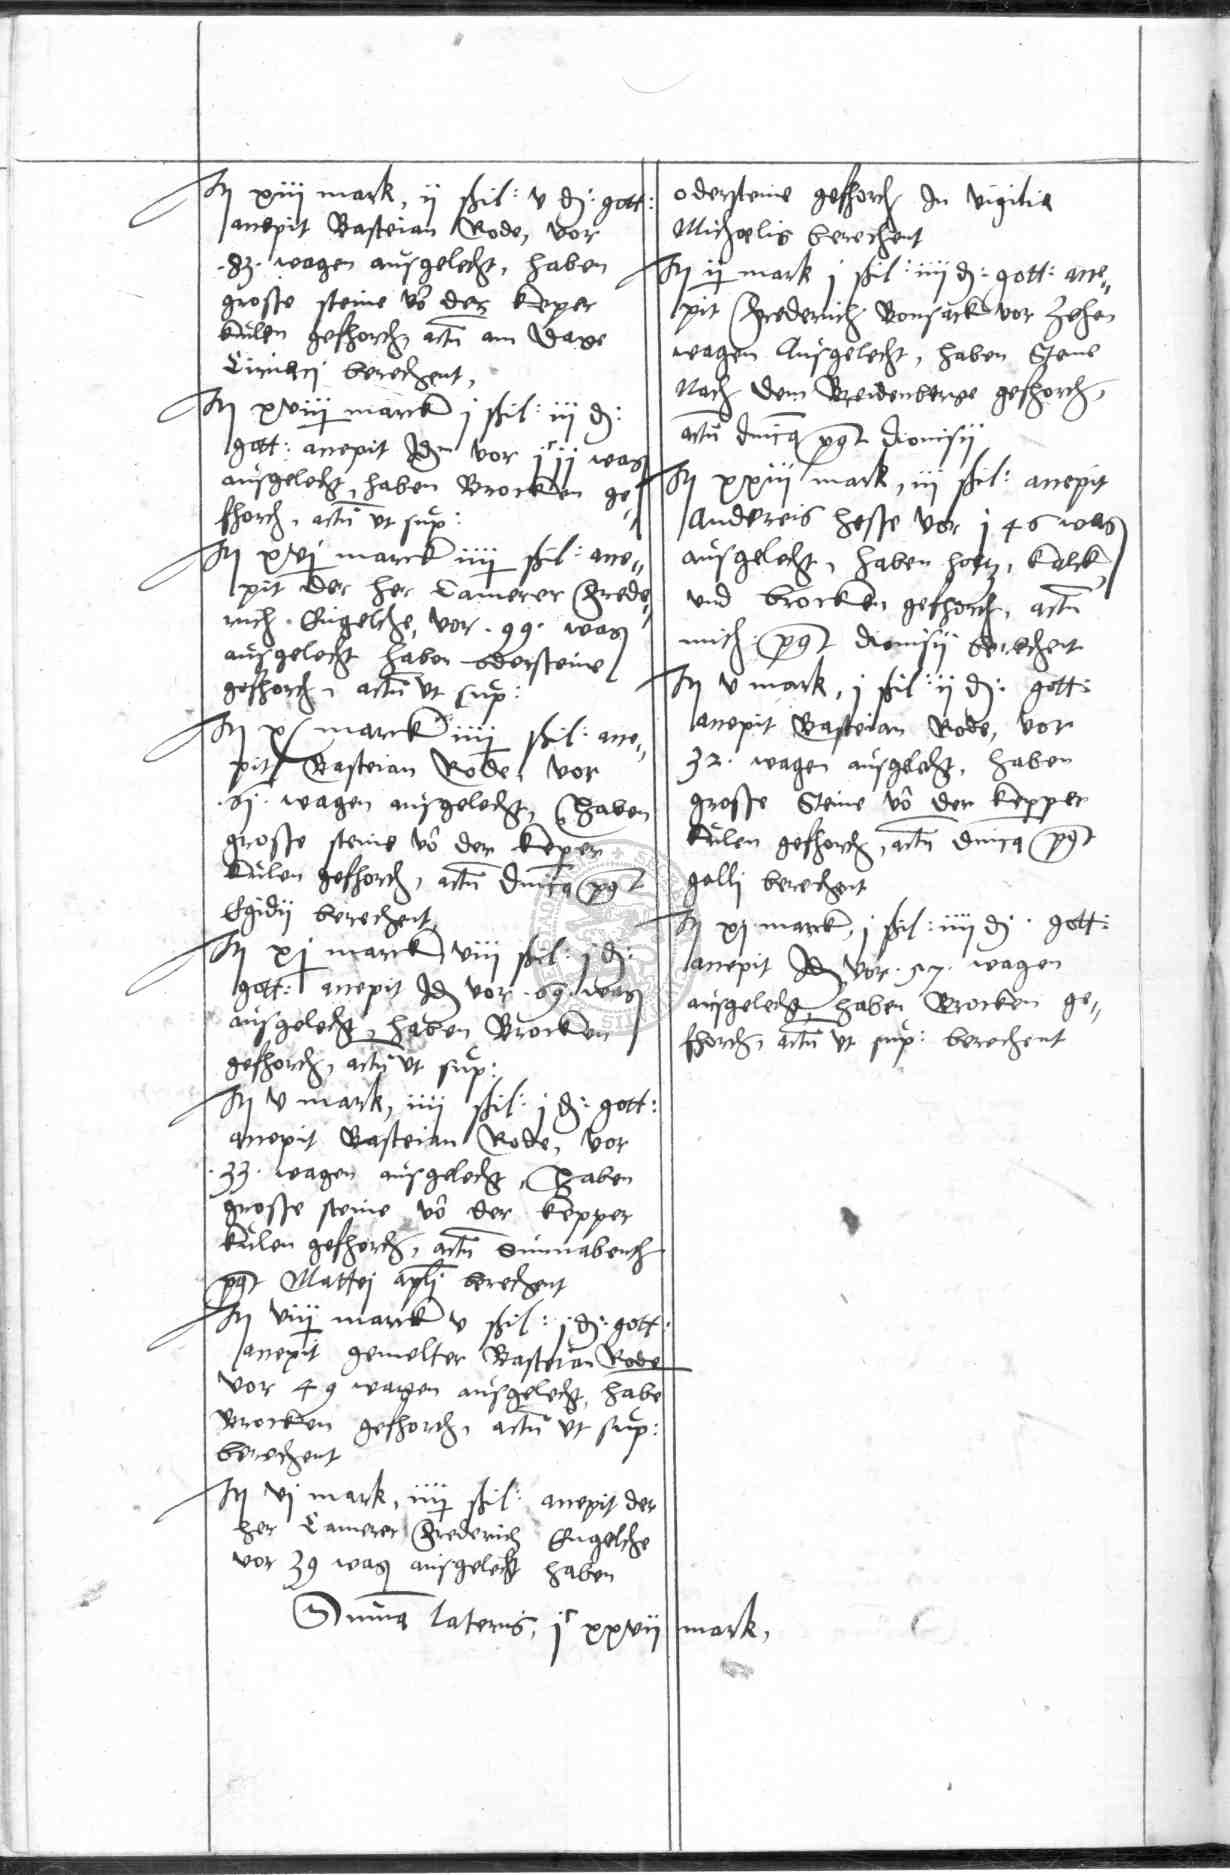 It xiii mark, ii ßil: v d: gott:
accepit Basteian Rode, vor
.83. wagen ausgelecht, haben
grosse steine vo der keper
kulen gefhorch, actu am dage
Ciriaci berechent,
It xviii marck j ßil: iii d:
gott: accepit Idm vor jc jj wag
ausgelecht, haben Brocken ge„
fhorch, actu ut sup:
It xvj marck iiii ßil: acce„
pit der her Camerer Frede„
rich Engelche, vor .99. wag
ausgelecht haben odersteine
gefhorch, actu ut sup:
It x marck iiii ßil: acce„
pit Basteian Rode, vor
.61. wagen ausgelecht, Haben
grosse steine vo der keper
kulen gefhorch, actu dnica pqt
Egidii berechent,
It xj marck viii ßil: j d:
gott: accepit Id vor .69. wag
ausgelecht, haben Brocken
gefhorch, actu ut sup:
It v mark, iiii ßil: j d: gott:
accepit Basteian Rode, vor
.33. wagen ausgelecht, Haben
grosse steine vo der kepper
kulen gefhorch, actu Sunnabench
pqt Mattej apli berechent
It viii marck v ßil: j d: gott:
accepit gemelter Basteian Rode
vor 49 wagen ausgelecht, habe
Brocken gefhorch, actu ut sup:
berechent
It vj mark, iiii ßil: accepit der
her Camerer Frederich Engelche
vor 39 wag ausgelecht haben
odersteine gefhorch In vigilia
Michaelis berechent
It ii mark j ßil: iiii d: gott: acce„
pit Frederich Bonsack vor Zehen
wagen Ausgelecht, haben Stene
Nach dem Breidenberge gefhorch,
actu dnica pqt dionisii
It xxiii mark, iii ßil: accepit
Andereis hesse vor j 46 wag
ausgelecht, haben holtz, kalck,
und brocken gefhorch, actu
mith: pqt dionisii berechent
It v mark, j ßil: ii d: gott:
accepit Basteian Rode, vor
32. wagen ausgelecht, haben
grosse Steine vo der kepper
kulen gefhorch, actu dnica pqt
galli berechent
It xj marck, j ßil: iiii d: gott:
accepit Id vor .57. wagen
ausgelecht, haben Brocken ge„
fhorch, actu ut sup: berechent
Suma lateris, jc xxvii mark,